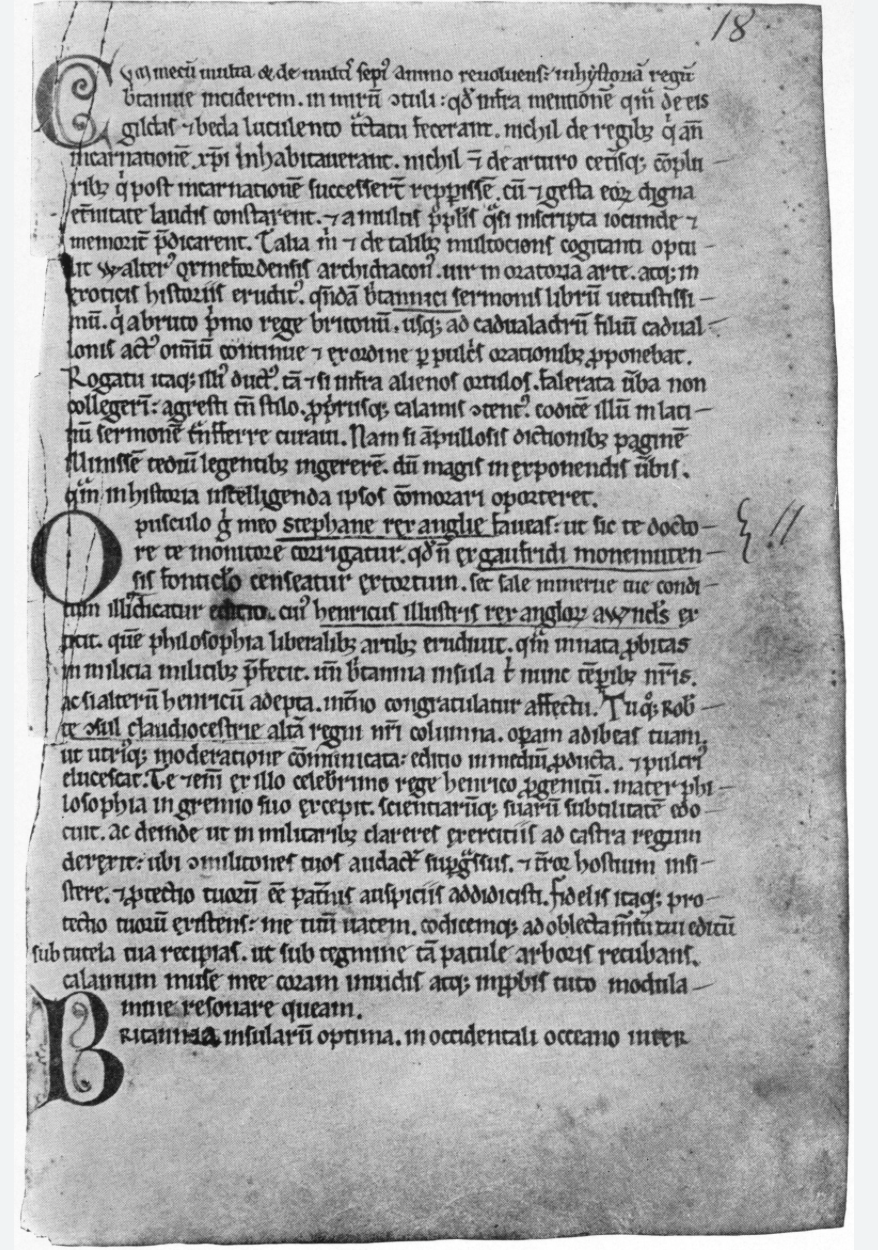 18
Cum mecū multa & de multꝭ sepiꝰ animo reuoluens: in hystoriā regū
b̄tannie inciderem. in mirū ɔtuli: qd̄ infra mentionē qm̄ de eis
gildas ⁊ beda luculento t̄ctatu fecerant. nichil de regibꝫ q̇ an̄
incarnationē xp̄i inhabitauerant. nichil ⁊̄ de arturo cet̄isqꝫ cōplu-
ribꝫ q̇ post incarnationē successer̄t repperissē. cū ⁊ gesta eoꝝ digna
et̄nitate laudis constarent. ⁊ a multis pp̄lis q̇si inscripta iocunde ⁊
memorit̄ p̄dicarent. Talia m̄ ⁊ de talibꝫ multociens cogitanti optu-
lit walterꝰ oxinefordensis archidiaconꝰ. uir in oratoria arte. atqꝫ in
exoticis historiis eruditꝰ. qn̄dā b̄tannici sermonis librū uetustissi-
mū. q̇ a bruto p̄mo rege britonū. usqꝫ ad cadualadrū filiū cadual-
lonis actꝰ om̄iū continue ⁊ ex ordine ꝑ pulc̄s orationibꝫ ꝓponebat.
Rogatu itaqꝫ illiꝰ ductꝰ. tā ⁊si infra alienos ortulos. falerata ūba non
collegerī: agresti tn̄ stilo. ꝓpriisqꝫ calamis ɔtentꝰ. codicē illū in lati-
nū sermonē tn̄sferre curaui. Nam si āpullosis dictionibꝫ paginē
illinissē tediū legentibꝫ ingererē. dū magis in exponendis ūbis.
qm̄ in historia intelligenda ipsos cōmorari oporteret.
Opusculo g̊ meo stephane rex anglie faueas: ut sic te docto-
re te monitore corrigatur. qd̄ n̄ ex gaufridi monemuten-
sis fonticlo censeatur extortum. set sale minerue tue condi-
tum illi dicatur editio. cuiꝰ henricus illustris rex angloꝝ awnclꝰs ex
ptit. quē philosophia liberalibꝫ artibꝫ erudiuit. qm̄ innata ꝓbitas
in milicia militibꝫ p̄fecit. un̄ b̄tannia insula t̄ nunc tēpibꝫ nr̄is.
ac si alterū henricū adepta. int̄no congratulatur affectu. Tu qꝫ Rob̄-
te ɔsul claudiocestrie altā regni nr̄i columna. oꝑam adibeas tuam.
ut utriqꝫ moderatione cōmunicata: editio in mediū ꝓducta. ⁊ pulcriꝰ
elucescat. Te ⁊em̄ ex illo celebrimo rege henrico ꝓgenitū. mater phi-
losophia in gremio suo excepit. scientiarūqꝫ suarū subtilitatē edo-
cuit. ac deinde ut in militaribꝫ clareres exercitiis ad castra regum
derexit: ubi ɔmilitones tuos audact̄ sup̄gssus. ⁊ t̄ror hostium insi-
stere. ⁊ ꝓtectio tuorū ēē pat̄nis auspiciis addidicisti. fidelis itaqꝫ pro-
tectio tuorū existens: me tuū uatem. codicemqꝫ ad oblectam̄tū tui editū
sub tutela tua recipias. ut sub tegmine tā patule arboris recubans.
calamum muse mee coram inuidis atqꝫ inꝓbis tuto modula-
mine resonare queam.
Britannia insularū optima. in occidentali occeano inter